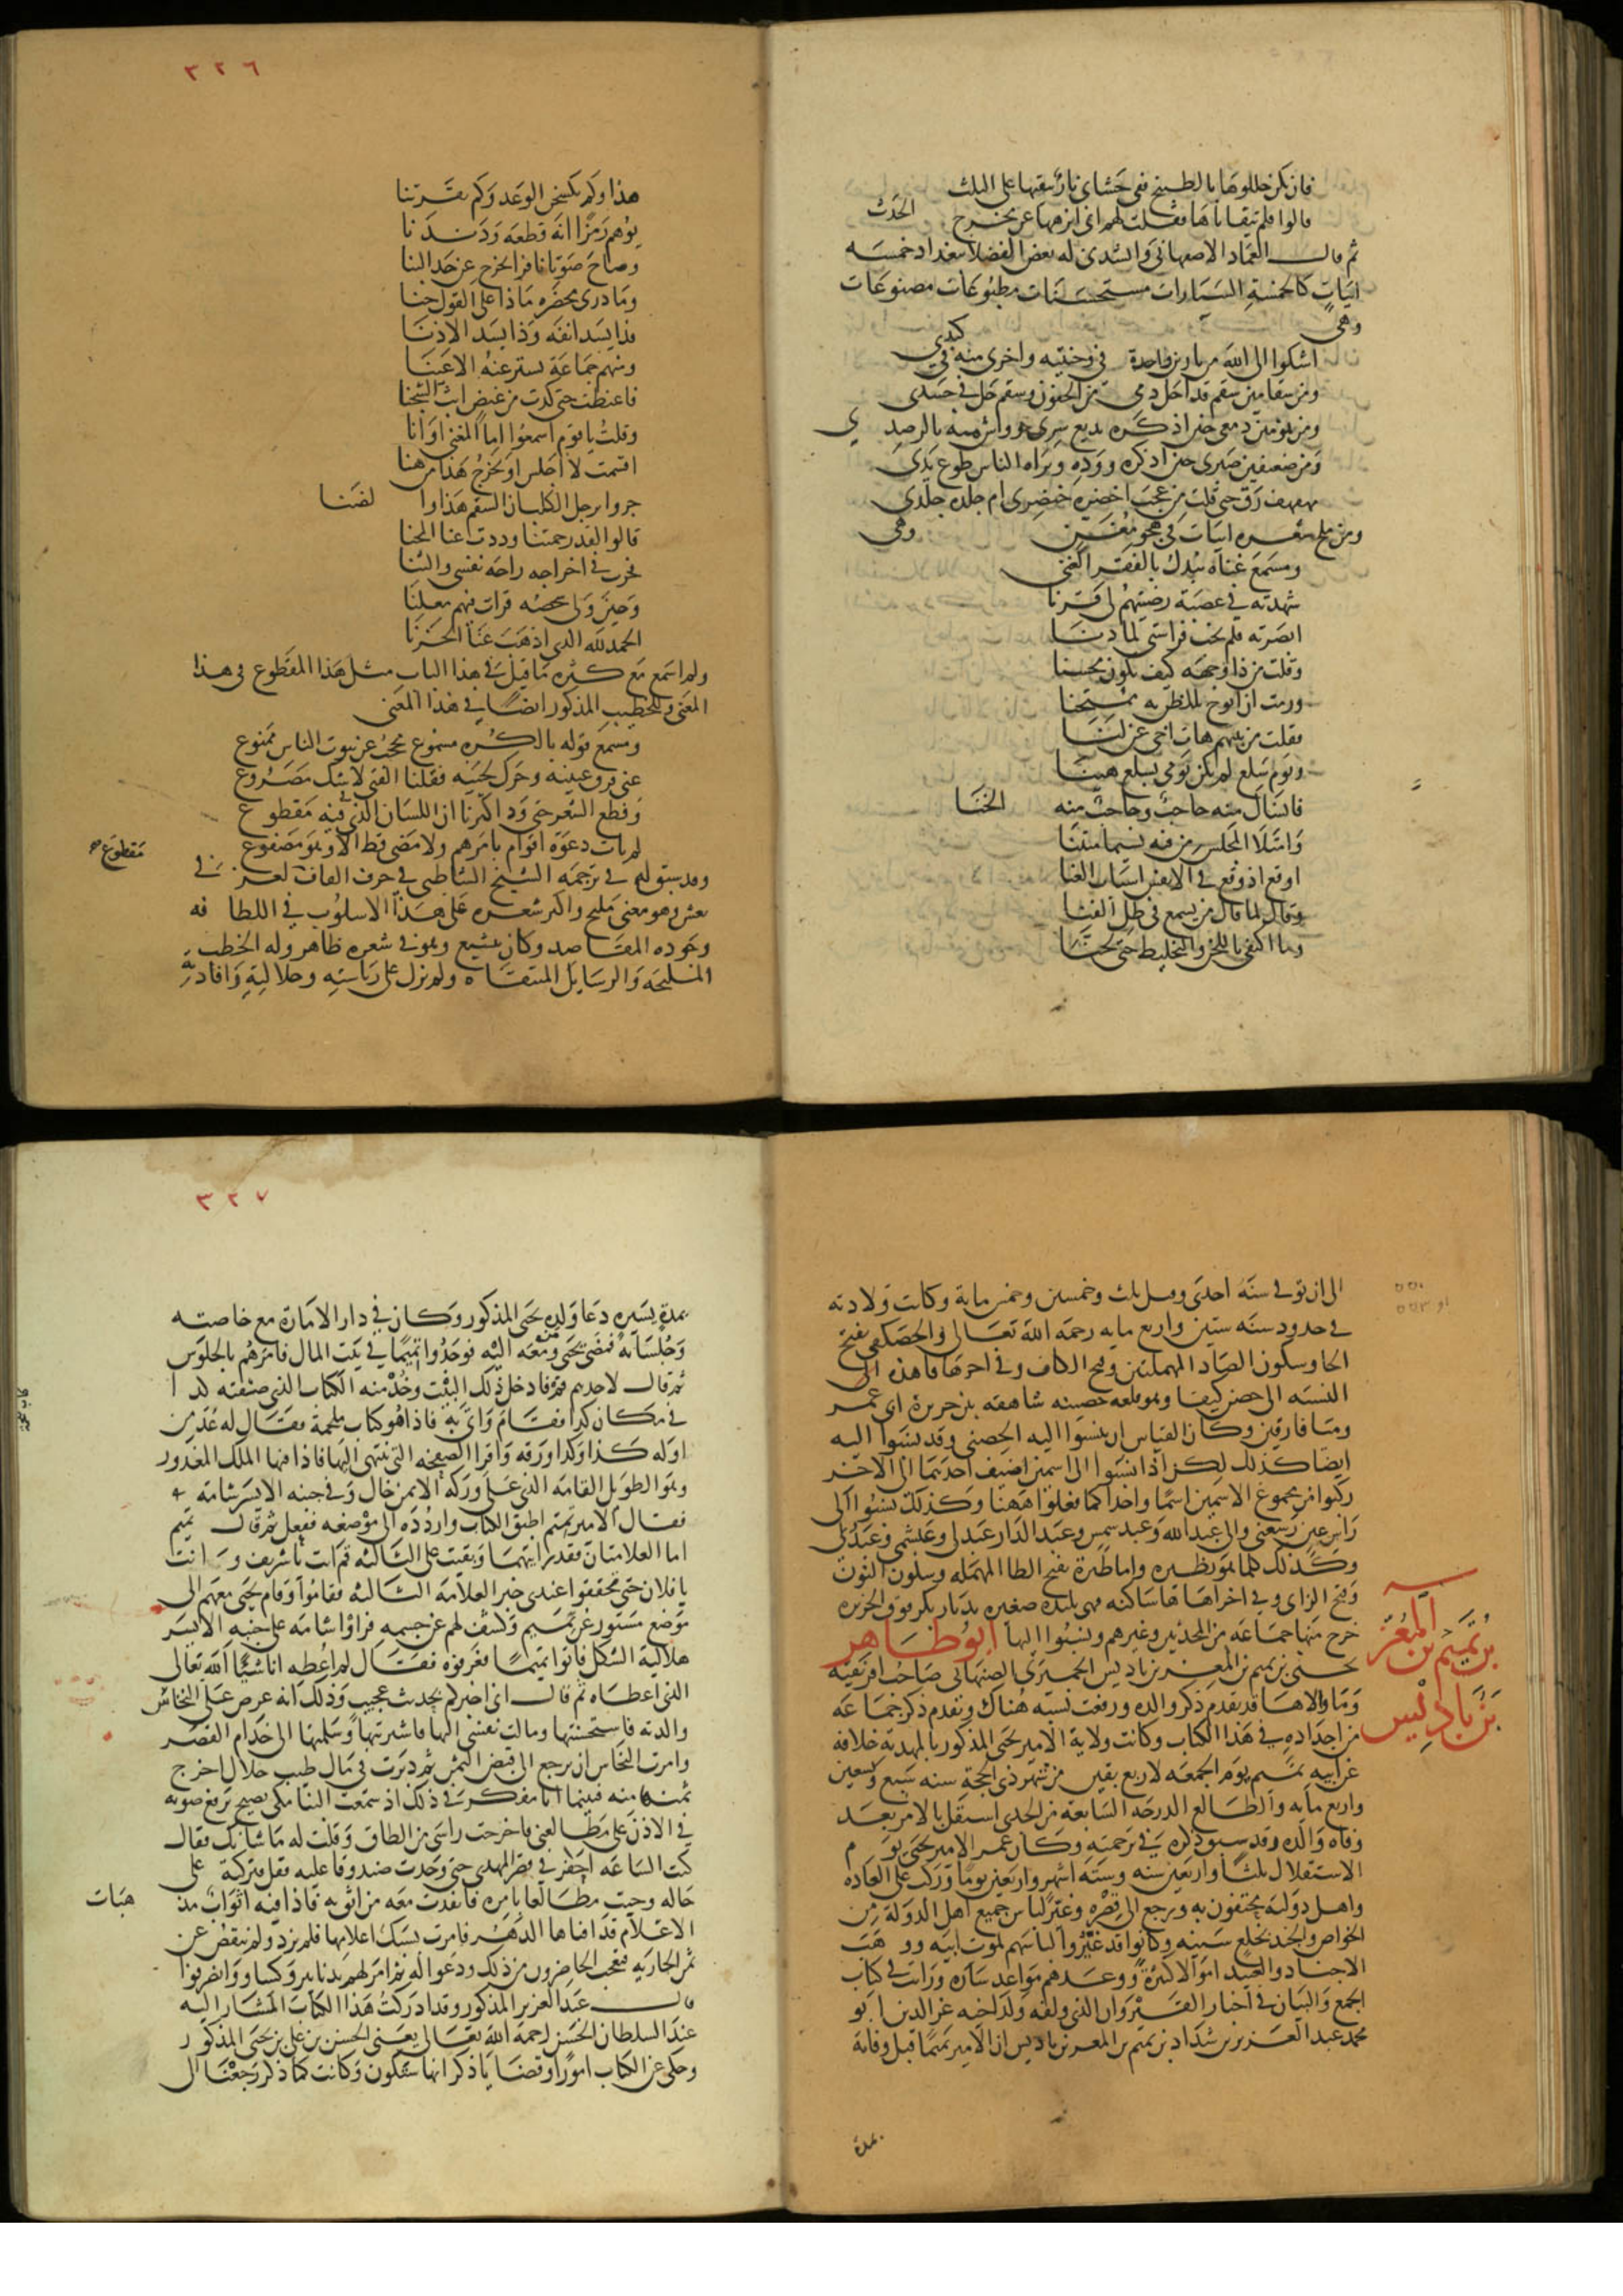 فان يكن خللوها بالطبيخ ففي حشاي نار تبقيها على الثلث
قالوا فلم تتقاياها فقلت لهم اني انزهها عن مخرج الحدث
ثم قال العماد الاصفهاني وانشدني له بعض الفضلا ببغداد خمسه
ابيات كالخمسة السيارات مستحسنات مطبوعات مصنوعات
وهي
اشكوا الى الله من نارين واحدة في وجنتيه واخرى منه في كبدي
ومن سقامين سقم قد احل دمي من الجفون وسقم حل في جسدي
ومن نمومين دمعي حين اذكره يذيع سري وواش منه بالرصدي
ومن ضعيفين صبري حين اذكره ووده ويراه الناس طوع يدي
مهفهف رق حتى قلت من عجب اخصره خنصري ام جلده جلدي
ومن ملح شعره ابيات في هجو مغنين وهي
ومسمع غناه يبدل بالفقر الغنى
شهدته في عصبة رضيتهم لي قرنا
ابصرته فلم تخب فراستي لما دنا
وقلت من ذا وجهه كيف يكون محسنا
ورمت ان اروح للظن به ممتحنا
فقلت من بينهم هات اخي غن لنا
ويوم سلع لم يكن يومي بسلع هينا
فانشال منه حاجب وحاجب منه انحنى
وامتلا المجلس من فيه نسيما منتنا
اوقع اذ وقع في الانفس اسباب العنا
وقال لما قال من يسمع في ظل الفنا
وما اكتفى باللحن والتخليط حتى لحنا
٣٢٦
هذا ولم يكشخن الوغد وكم تقرتنا
يوهم زمرا انه قطعه ودندنا
وصاح صوتا نافرا يخرج عن حد البنا
وما درى محضره ماذا على القوم جنا
فذا يسد انفه وذا يسد الاذنا
ومنهم جماعة يستر عنه الاعينا
فاغتظت حتى كدت من غيظي ابث الشجنا
وقلت يا قوم اسمعوا اما المغني او انا
اقسمت لا اجلس او يخرج هذا من هنا
جروا برجل الكلب ان السقم هذا والضنا
قالوا لقد رحمتنا وددت عنا المحنا
فحزت في اخراجه راحة نفسي والثنا
وحين ولى شخصه قرات فيهم معلنا
الحمد لله الذي اذهب عنا الحزنا
ولم اسمع مع كثرة ما قيل في هذا الباب مثل هذا المقطوع في هذا
المعنى وللخطيب المذكور ايضا في هذا المعنى
ومسمع قوله بالكره مسموع محجب عن بيوت الناس ممنوع
غنى فبرق عينيه وحرك لحييه فقلنا الفتى لا شك مصروع
وقطع الشعر حتى ود اكثرنا ان اللسان الذي في فيه مقطوع
لم يات دعوة اقوام بامرهم ولا مضى قط الا وهو مصفوع
مقطوع صح
وقد سبق له في ترجمة الشيخ الشاطبي في حرف القاف لغز في
نعش وهو معنى مليح واكثر شعره على هذا الاسلوب في اللطافه
وجوده المقاصد وكان يتشيع وهو في شعره ظاهر وله الخطب
المليحه والرسايل المنتقاه ولم يزل على رياسته وجلالته وافادته
الى ان توفي سنة احدى وقيل ثلث وخمسين وخمس ماية وكانت ولادته
في حدود سنه ستين واربع مايه رحمه الله تعالى والحصكفي بفتح
الحا وسكون الصاد المهملتين وفتح الكاف وفي اخرها فا هذه
النسبه الى حصن كيفا وهو قلعه حصينه شاهقه بين جزيرة ابن عمر
وميافارقين وكان القياس ان ينسبوا اليه الحصني وقد نسبوا اليه
ايضا كذلك لكن اذا نسبوا الى اسمين اضيف احدهما الى الاخر
ركبوا من مجموع الاسمين اسما واحدا كما فعلوا ههنا وكذلك نسبوا الى
راس عين رسعني والى عبد الله وعبد شمس وعبد الدار عبدلي وعبشمي وعبدري
وكذلك كلما هو نظيره واما طنزة بفتح الطا المهمله وسكون النون
وفتح الزاي وفي اخرها ها ساكنه فهي بليده صغيره بديار بكر فوق الجزيره
خرج منها جماعه من المحدثين وغيرهم ونسبوا اليها ابو طاهر
يحيى بن تميم بن المعز بن باديس الحميري الصنهاجي صاحب افريقيه
وما والاها قد تقدم ذكر والده ورفعت نسبه هناك وتقدم ذكر جماعه
من اجداده في هذا الكتاب وكانت ولاية الامير يحيى المذكور بالمهديه خلافه
عن ابيه تميم يوم الجمعه لاربع بقين من شهر ذي الحجة سنه سبع وتسعين
واربع مايه والطالع الدرجه السابعة من الجدي استقل بالامر بعد
وفاة والده وقد سبق ذكره في ترجمته وكان عمر الامير يحيى يوم
الاستقلال ثلثا واربعين سنه وسته اشهر واربعين يوما وركب على العاده
واهل دولته محتفون به ورجع الى قصره وغير لباس جميع اهل الدولة من
الخواص والجند بخلع سنيه وكانوا قد غيروا لباسهم لموت ابيه ووهب
الاجناد والعبيد اموالا كثيرة ووعدهم مواعد ساره ورايت في كتاب
الجمع والبيان في اخبار القيروان الذي الفه ولد اخيه عز الدين ابو
محمد عبد العزيز بن شداد بن تميم بن المعز بن باديس ان الامير تميما قبل وفاته
بمدة
بن تميم بن المعز
بن باديس
٣٢٧
بمدة يسيره دعا ولده يحيى المذكور وكان في دار الامارة مع خاصته
وجلسائه فمضى يحيى ومن معه اليه فوجدوا تميما في بيت المال فامرهم بالجلوس
ثم قال لاحدهم قم فادخل ذلك البيت وخذ منه الكتاب الذي صفته كذا
في مكان كذا فقام واتى به فاذا هو كتاب ملحمة فقال له عد من
اوله كذا وكذا ورقه واقرا الصفحه التي تنتهي اليها فاذا فيها الملك المغدور
وهو الطويل القامه الذي على وركه الايمن خال وفي جنبه الايسر شامه
فقال الامير تميم اطبق الكتاب واردده الى موضعه ففعل ثم قال تميم
اما العلامتان فقد رايتهما وبقيت علي الثالثه قم انت يا شريف وانت
يا فلان حتى تحققوا عندي خبر العلامه الثالثه فقاموا وقام يحيى معهم الى
موضع مستور عن تميم وكشف لهم عن جسمه فراوا شامه على جنبه الايسر
هلالية الشكل فاتوا تميما فعرفوه فقال لم اعطه انا شيئا الله تعالى
الذي اعطاه ثم قال اني اخبركم بحديث عجيب وذلك انه عرض علي النخاس
والدته فاستحسنتها ومالت نفسي اليها فاشتريتها وسلمتها الى خدام القصر
وامرت النخاس ان يرجع الى قبض الثمن ثم دبرت في مال طيب حلال اخرج
ثمنها منه فبينما انا مفكر في ذلك اذ سمعت الينا مكي يصيح يرفع صوته
في الاذن على مطالعتي فاخرجت راسي من الطاق وقلت له ما شانك فقال
كنت الساعه احفر في قصر المهدي حتى وجدت صندوقا عليه قفل فتركته على
حاله وجيت مطالعا بامره فانفذت معه من اثق به فاذا فيه اثواب مذهبات
الاعلام قد افناها الدهر فامرت بسبك اعلامها فلم يزد ولم ينقص عن
ثمن الجاريه فتعجب الحاضرون من ذلك ودعوا له ثم امر لهم بدنانير وكساو وانصرفوا
قال عبد العزيز المذكور وقد ادركت هذا الكتاب المشار اليه
عند السلطان الحسن رحمه الله تعالى يعني الحسن بن علي بن يحيى المذكور
وحكى عن الكتاب امورا وقضايا ذكر انها ستكون وكانت كما ذكر رجعنا الى